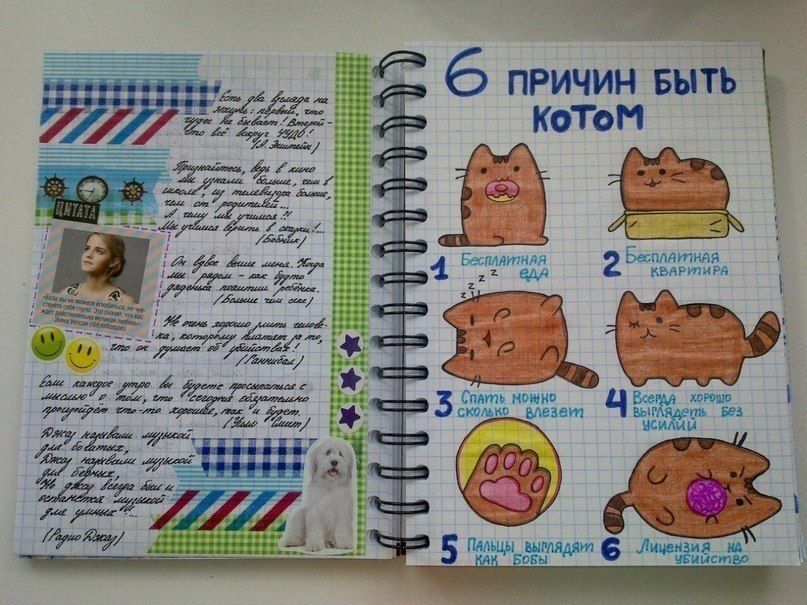 Есть два взгляда на
жизнь: первый, что
чудес не бывает! Второй -
что всё вокруг ЧУДО!
(А. Эйнштейн)
Признайтесь, ведь в кино
мы узнали больше, чем в
школе, из телевизора больше,
чем от родителей...
А чему мы учимся?!
Мы учимся верить в сказки!...
(Бобник)
ЦИТАТА
«Если вы не можете влюбиться, не чув-
ствуйте себя глупо. Это значит, что вас
ждет действительно великая любовь»
Эмма Уотсон (@EmWatson)
Он вдвое выше меня. Когда
мы рядом - как будто
дяденька похитил ребёнка.
(Больше чем секс)
Не очень хорошо злить челове-
ка, которому платят за то,
что он думает об убийствах!
(Ганнибал)
Если каждое утро вы будете просыпаться с
мыслью о том, что сегодня обязательно
произойдёт что-то хорошее, так и будет.
(Уилл Смит)
Джаз называли музыкой
для богатых,
Джаз называли музыкой
для бедных,
Но джаз всегда был и
останется музыкой
для умных!...
(Радио Джаз)
6 ПРИЧИН БЫТЬ
КОТОМ
1 Бесплатная
еда
2 Бесплатная
квартира
z z z z
3 Спать можно
сколько влезет
4 Всегда хорошо
выглядеть без
усилий
5 Пальцы выглядят
как бобы
6 Лицензия на
убийство